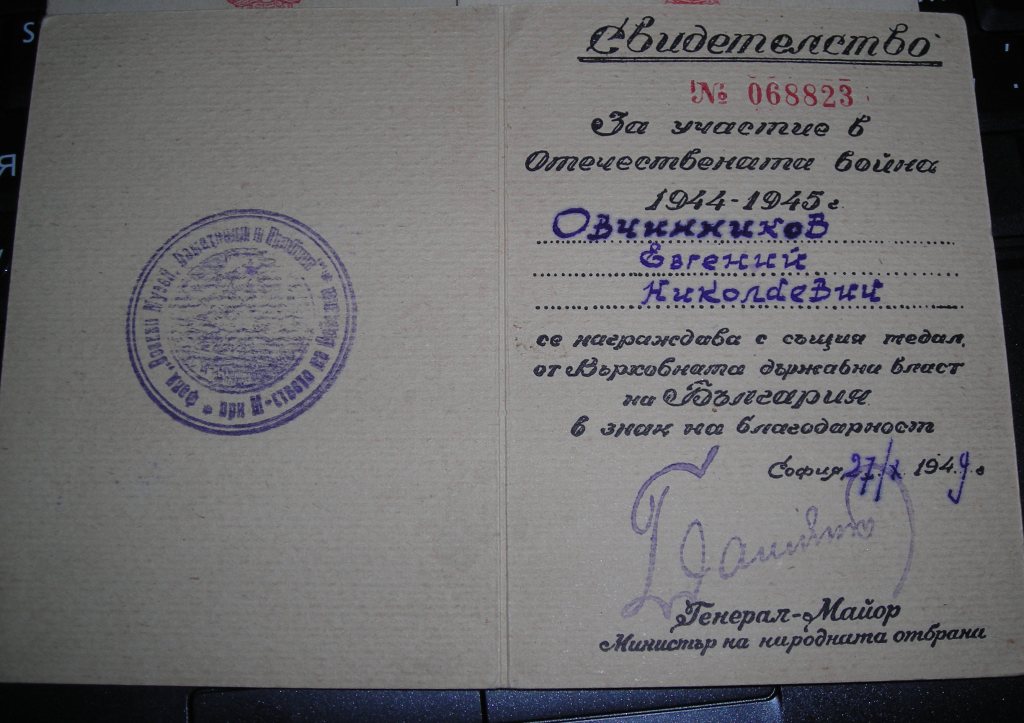 Фонд „Военни Музеи, Паметници и Гробове"
при М-вството на
Свидетелство
№ 068823
За участие в
Отечествената война
1944-1945 г
Овчинников
Евгений
Николаевич
се награждава с същия медал
от Върховната държавни власт
на България
в знак на благодарност
София 27/X 1949 г
Генерал-Майор
Министър на народната отбрани
S
Я